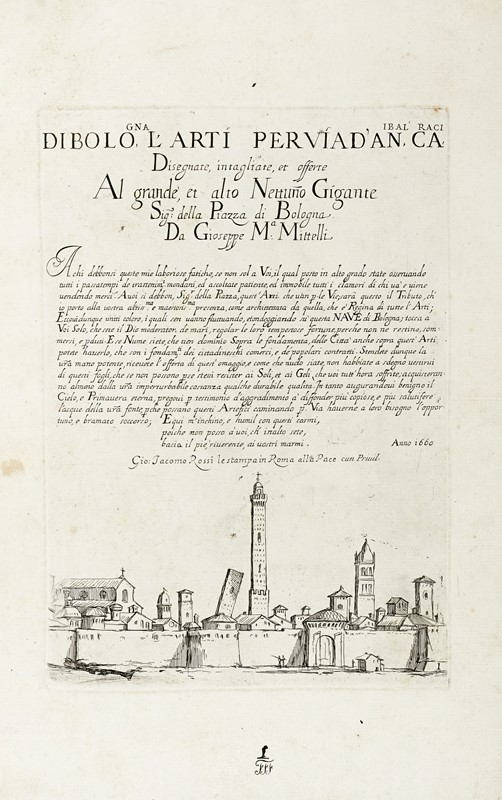 GNA IBAL RACI
DI BOLO, L'ARTI PER VIA D'AN, CA
Disegnate, intagliate, et offerte
Al grande, et alto Nettuño Gigante
Sigʳ. della Piazza di Bologna
Da Gioseppe Mᵃ. Mittelli.
A chi debbonsi queste mie laboriose fatiche, se non sol a Voi, il qual posto in alto grado state osseruando
tutti i passatempi de mondani, ed ascoltate patiente, ed immobile tutti i clamori di chi uà e uiene
uendendo merci? A uoi si debbon, Sigʳ della Piazza, quest'Arti che uan p le Vie; sarà questo il Tributo, ch'
io porto alla uostra altissᵐᵃ e maestosissᵐᵃ presenza, come architettata da quella, che è Regina di tutte l'Arti;
Eccoui dunque uniti coloro, i quali sen uanno fluttuando, et ondeggiando sù questa NAVE di Bologna; tocca a
Voi Solo, che sete il Dio moderator de mari, regolar le loro tempestose fortune, perche non ne restino som-
mersi, e pduti. E se Nume siete, che tien dominio Sopra le fondamenta delle Città, anche sopra quest'Arti
potete hauerlo, che son i fondamᵗⁱ dei cittadineschi comerci, e de popolari contratti. Stendete dunque la
urã mano potente, riceuete l'offerta di questi omaggi, e come che nudo siate, non habbiate a sdegno uestirui
di questi fogli, che se non possono p se stessi resister ai Soli, et ai Geli, che uoi tutt'hora soffrite, acquisteran-
no almeno dalla urã imperturbabile costanza qualche durabile qualità. In tanto augurandoui benigno il
Cielo, e Primauera eterna, pregoui p testimonio d'aggradimento a diffonder più copiose, e più salutifere
l'acque della urã fonte, pche possano questi Artefici caminando p Via hauerne a loro bisogno l'oppor-
tuno, e bramato soccorso; E qui m'inchino, e humil con questi carmi,
poiche non posso à uoi, sì in alto sete,
bacio il piè, riuerente, ai uostri marmi.
Anno 1660
Gio: Jacomo Rossi le stampa in Roma alla Pace cun Priuil.